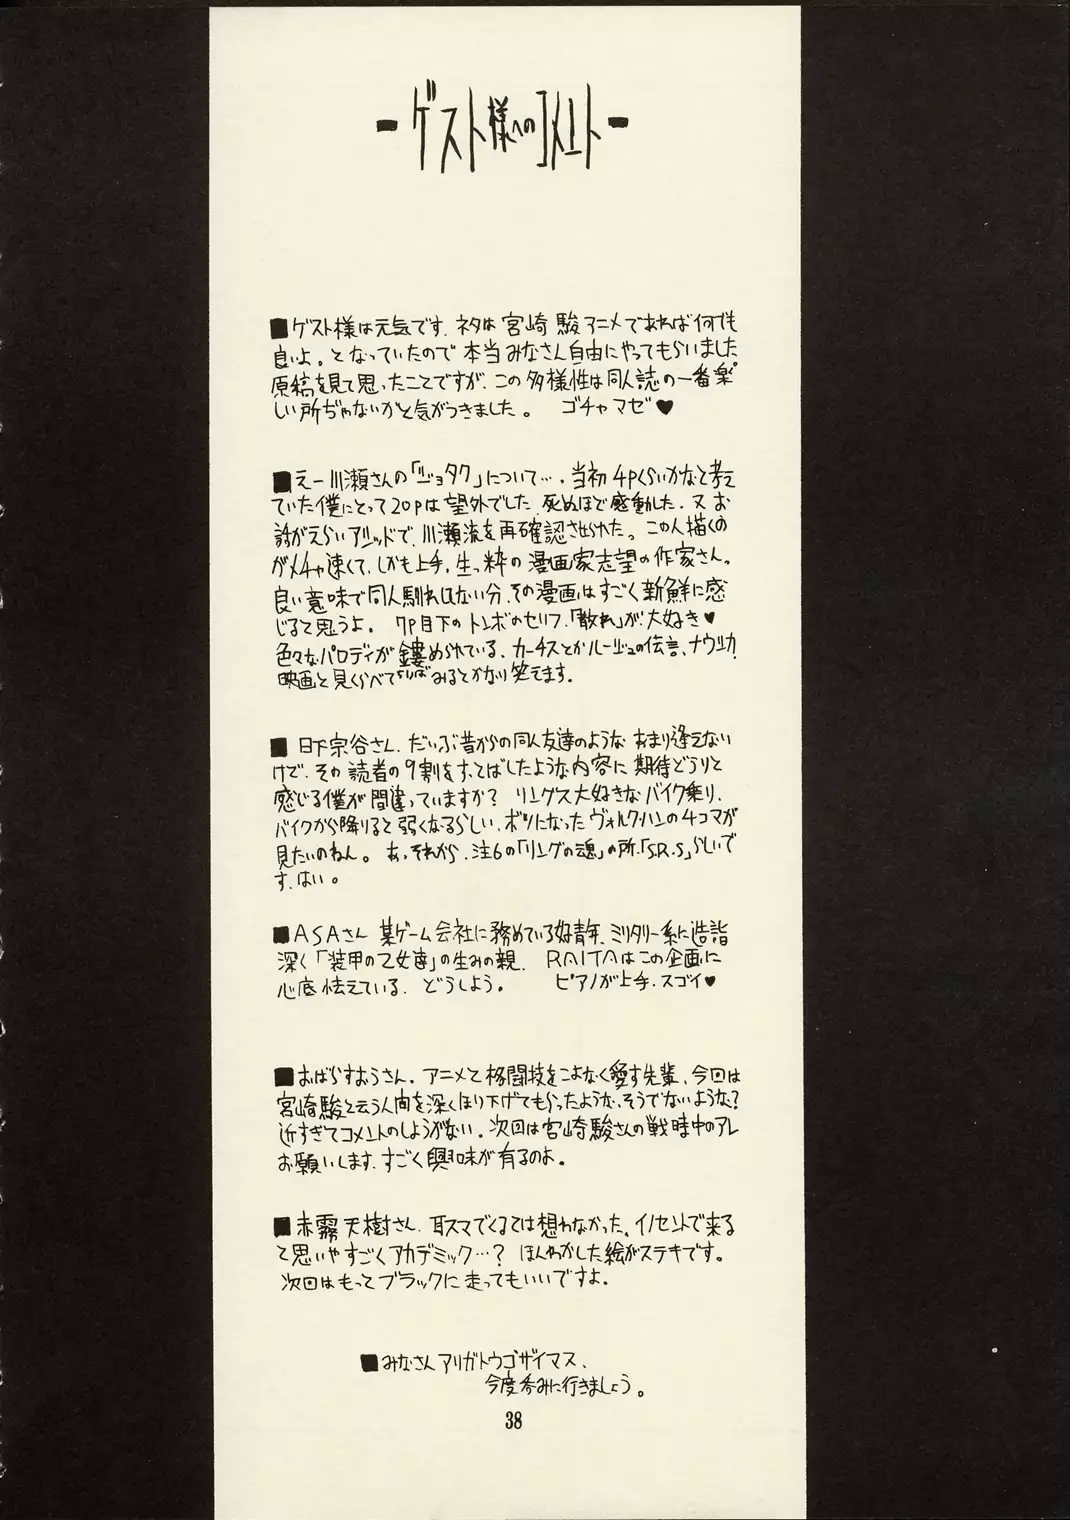 -ゲスト様へのコメント-
■ゲスト様は元気です。ネタは宮崎駿アニメであれば何でも
良いよ。となっていたので本当みなさん自由にやってもらいました。
原稿を見て思ったことですが、この多様性は同人誌の一番楽
しい所ぢゃないかと気がつきました。 ゴチャマゼ♥
■えー川瀬さんの「ジョタク」について…。当初4Pくらいかなと考え
ていた僕にとって20Pは望外でした。死ぬほど感動した。又お
話がえらいアシッドで、川瀬流を再確認させられた。この人描くの
がメチャ速くて、しかも上手。生っ粋の漫画家志望の作家さん。
良い意味で同人馴れしてない分、その漫画はすごく新鮮に感
じると思うよ。 7P目下のトンボのセリフ、「散れ」が大好き♥
色々なパロディが鏤められている、カーチスとかルージュの伝言、ナウシカ。
映画と見くらべてみるとかなり笑えます。
■日下宗谷さん。だいぶ昔からの同人友達のような あまり逢えない
けど、その読者の9割をすってばしたような内容に期待どうりと
感じる僕が間違っていますか? リングス大好きなバイク乗り、
バイクから降りると弱くなるらしい、ボツになったヴォルク・ハンの4コマが
見たいのねん。 あ、それから、注6の「リングの魂」の所、「S.R.S」らしいで
す、はい。
■ASAさん 某ゲーム会社に務めている好青年、ミリタリー系に造詣
深く「装甲の乙女達」の生みの親。 RAITAはこの企画に
心底怯えている。どうしよう。 ピアノが上手、スゴイ♥
■おばらすおうさん。アニメと格闘技をこよなく愛す先輩、今回は
宮崎駿と云う人間を深くほり下げてもらったような、そうでないような?
近すぎてコメントのしようがない。次回は宮崎駿さんの戦時中のアレ
お願いします、すごく興味が有るのよ。
■赤霧天樹さん。耳スマでくるとは想わなかった。イノセントで来る
と思いやすごくアカデミック…? ほんわかした絵がステキです。
次回はもってブラックに走ってもいいですよ。
■みなさんアリガトウゴザイマス、
今度呑みに行きましょう。
38